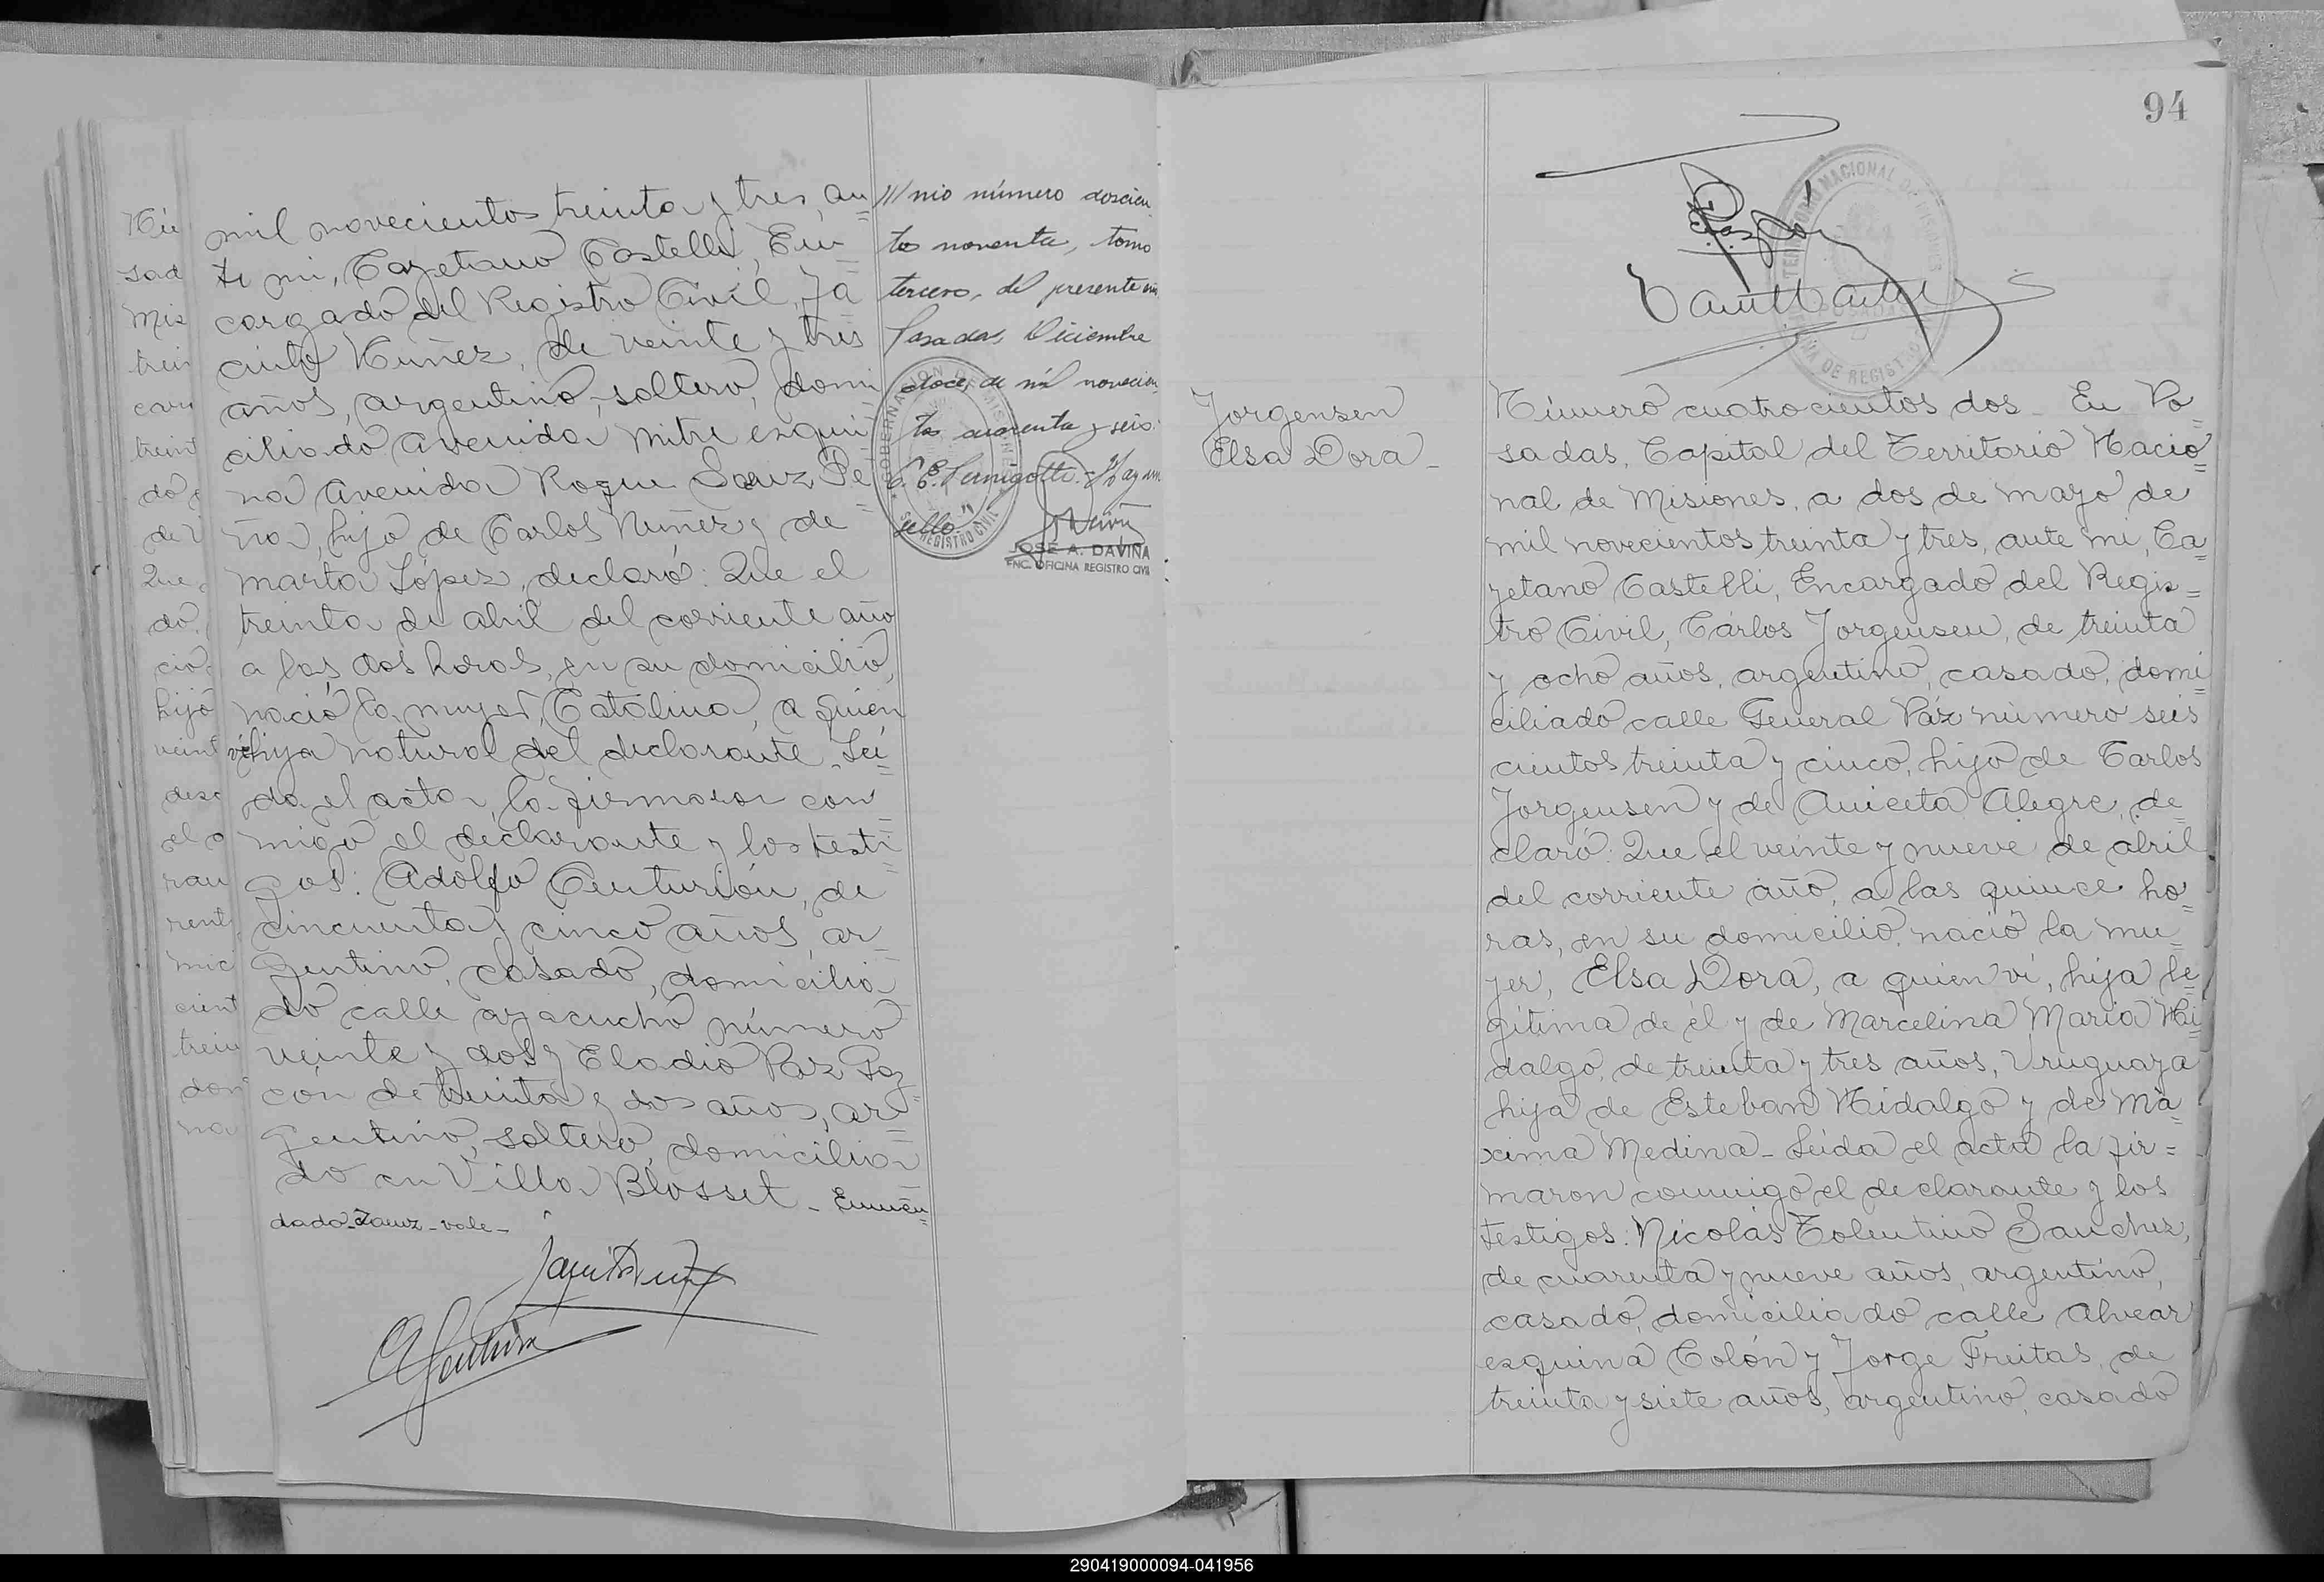 mil novecientos treinta y tres, an=
te mi, Cayetano Castelli, En=
cargado del Registro Civil, Ja
cinto Nuñez, de veinte y tres
años, argentino, soltero, domi
ciliado avenida Mitre esqui
na Avenida Roque Saenz Pe
ña, hijo de Carlos Nuñez y de
Marta López, declaró: Que el
treinta de abril del corriente año
a las dos horas, en su domicilio,
nació la mujer, Catalina, a quien
ví hija natural del declarante. Leí=
da el acta, la firmaron con
migo el declarante y los testi
gos: Adolfo Centurión, de
cincuenta y cinco años, ar=
gentino, casado, domicilia
do calle ayacucho número
veinte y dos y Eladio Paz
cón de treinta y dos años, ar=
gentino, soltero, domicilia=
do en Villa Blosset - Enmen=
dado-Saenz-vale-
/// nio número doscien
tos noventa, tomo
tercero, del presente
Posadas, Diciembre
doce, de mil novecien
tos cuarenta y seis.
sello
GOBERNACION DE MISIONES
REGISTRO CIVIL
JOSÉ A. DAVIÑA
ENC. OFICINA REGISTRO CIVIL
94
TERRITORIO NACIONAL DE MISIONES
POSADAS
OFICINA DE REGISTRO
Jorgensen
Elsa Dora -
Número cuatrocientos dos - En Po=
sadas, Capital del Territorio Nacio=
nal de Misiones, a dos de mayo de
mil novecientos treinta y tres, ante mi, Ca=
yetano Castelli, Encargado del Regis=
tro Civil, Cárlos Jorgensen, de treinta
y ocho años, argentino, casado, domi=
ciliado calle General Páz número seis
cientos treinta y cinco, hijo de Carlos
Jorgensen y de Aniceta Alegre, de=
claró: Que el veinte y nueve de abril
del corriente año, a las quince ho=
ras, en su domicilio, nació la mu=
jer, Elsa Dora, a quien ví, hija le
gítima de él y de Marcelina María Hi=
dalgo, de treinta y tres años, Uruguaya
hija de Esteban Hidalgo y de Má=
xima Medina - Leída el acta la fir=
maron conmigo el declarante y los
testigos: Nicolás Tolentino Sanchez,
de cuarenta y nueve años, argentino,
casado, domiciliado calle Alvear
esquina Colón y Jorge Freitas, de
treinta y siete años, argentino, casado
290419000094-041956